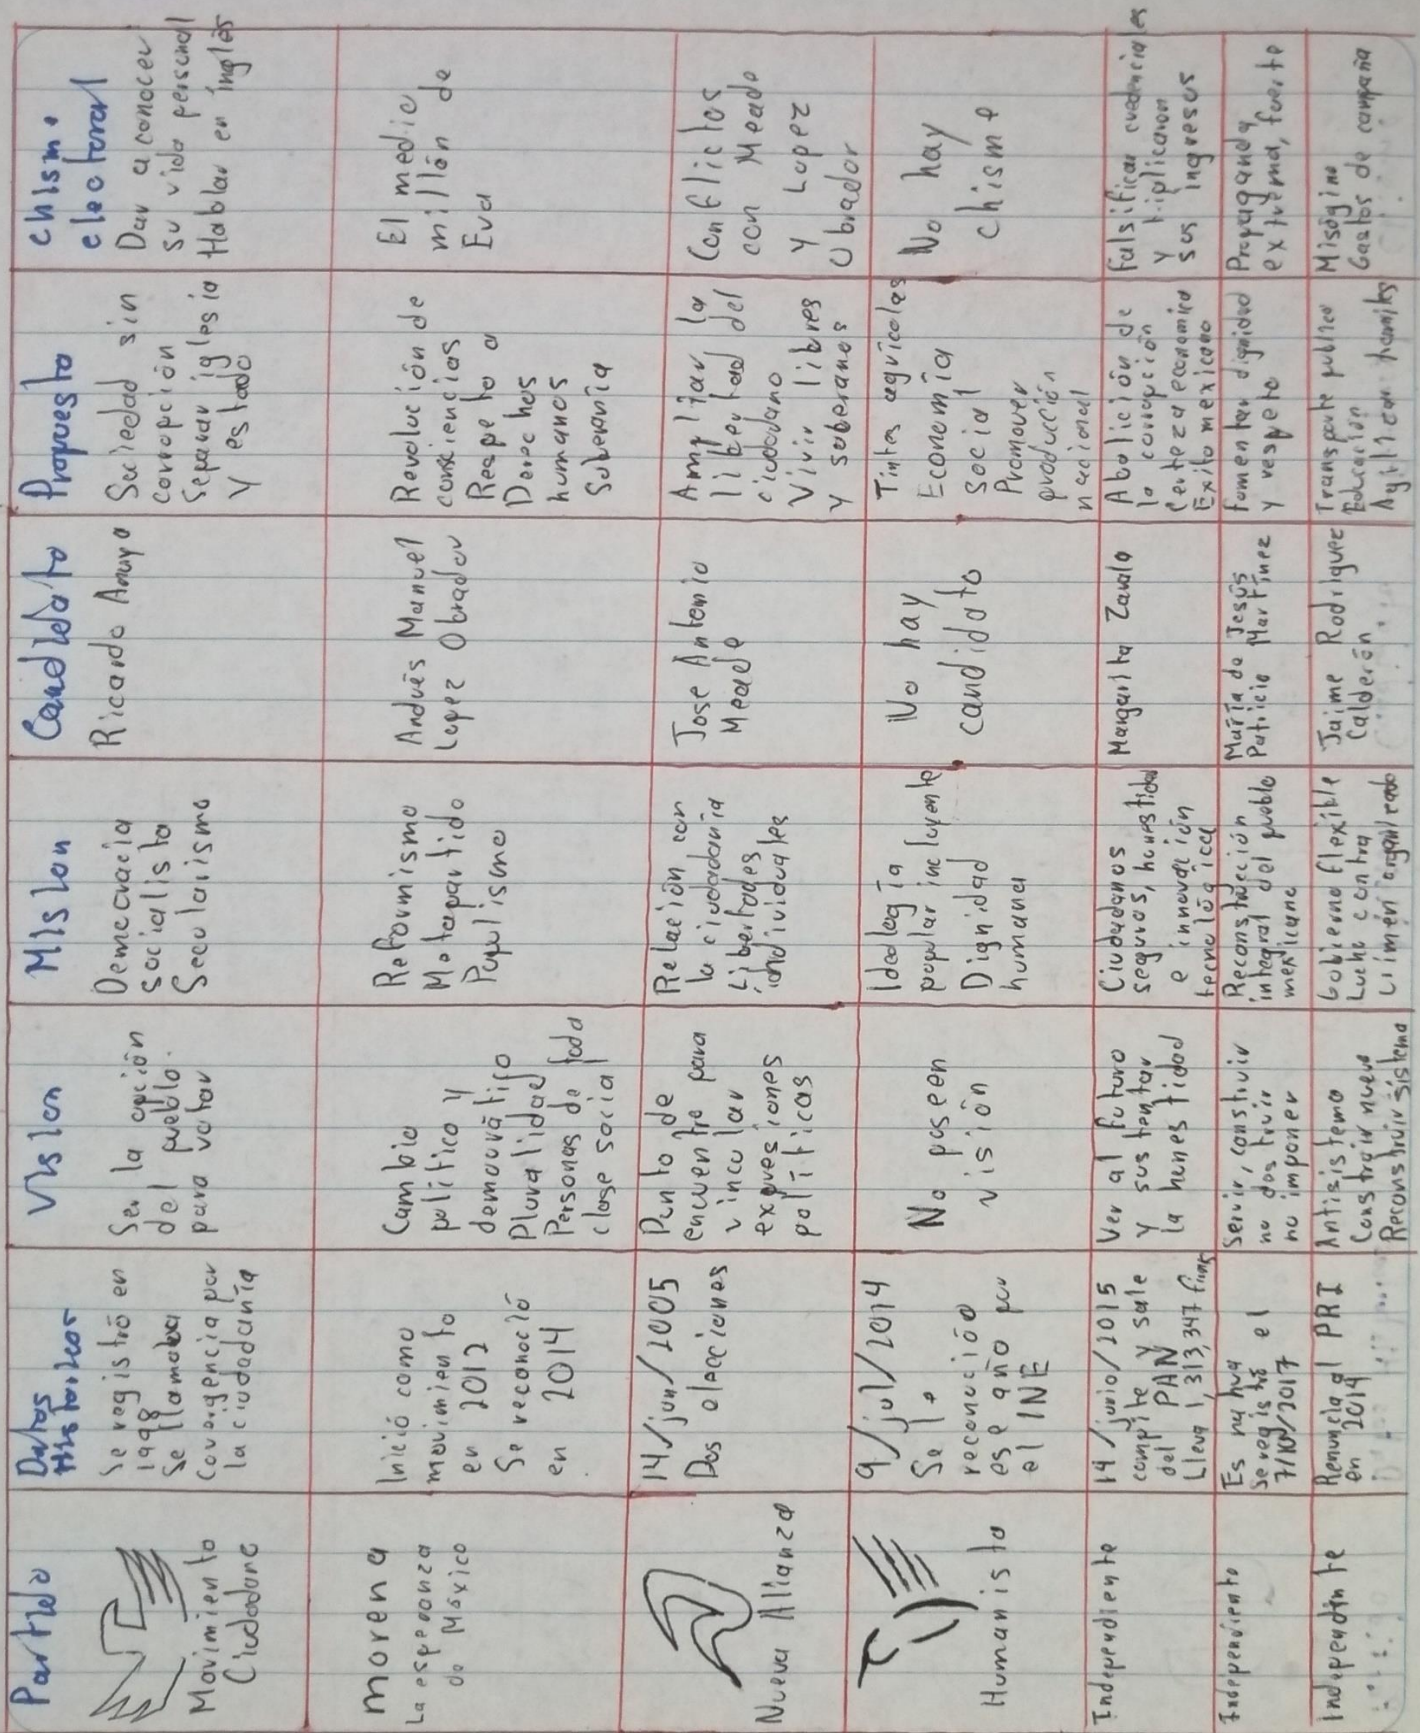 Partido
Datos
Historicos
Vision
Mision
Candidato
Propuesta
Chisme
electoral
Movimiento
Ciudadano
Se registró en
1998
Se llamaba
Covergencia por
la ciudadanía
Ser la opción
del pueblo.
para votar
Democracia
socialista
Secularismo
Ricardo Anaya
Sociedad sin
corrupción
Separar iglesia
y estado
Dar a conocer
su vida personal
Hablar en inglés
morena
La esperanza
de México
Inició como
movimiento
en 2012
Se reconoció
en 2014
Cambio
político y
democrático
Pluralidad
Personas de toda
clase social
Reformismo
Motapartido
Populismo
Andrés Manuel
Lopez Obrador
Revolución de
consciencias
Respeto a
Derechos
humanos
Soberanía
El medio
millón de
Eva
Nueva Alianza
14/jun/2005
Dos elecciones
Punto de
encuentro para
vincular
expresiones
políticas
Relación con
la ciudadanía
Libertades
individuales
Jose Antonio
Meade
Ampliar la
libertad del
ciudadano
Vivir libres
y soberanos
Conflictos
con Meade
y Lopez
Obrador
Humanista
9/jul/2014
Se le
reconoció
ese año por
el INE
No poseen
visión
Ideología
popular incluyente
Dignidad
humana
No hay
candidato
Tintes agrícolas
Economía
social
Promover
producción
nacional
No hay
chisme
Independiente
14/junio/2015
compite y sale
del PAN
Lleva 1,313,347 firmas
Ver al futuro
y sustentar
la honestidad
Ciudadanos
seguros, honestidad
e innovación
tecnológica
Margarita Zavala
Abolición de
la corrupción
Certeza economica
Éxito mexicano
Falsificar credenciales
y triplicaron
sus ingresos
Independiente
Es nahua
Se registró el
7/10/2017
Servir, construir
no destruir
no imponer
Reconstrucción
integral del pueblo
mexicano
María de Jesús
Patricio Martínez
Fomentar dignidad
y respeto
Propaganda
extrema, fuerte
Independinte
Renuncia al PRI
en 2014
Antisistema
Construir nuevo
Reconstruir sistema
Gobierno flexible
Luche contra
crimen organizado
Jaime Rodríguez
Calderón
Transporte publico
Educación
Misógino
Gastos de campaña